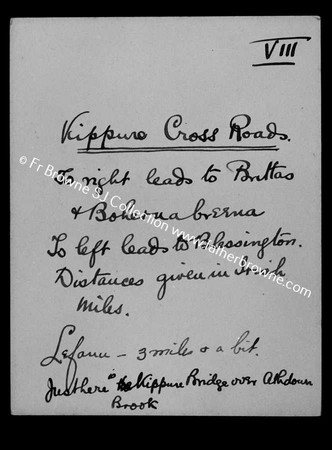 VIII
Kippure Cross Roads.
To right leads to Brittas
& Bohernabreena
To left leads to Blessington.
Distances given in Irish
miles.
Lefanu – 3 miles & a bit.
Just here is Kippure Bridge over Athdown
Brook
© Fr Browne SJ Collection www.fatherbrowne.com